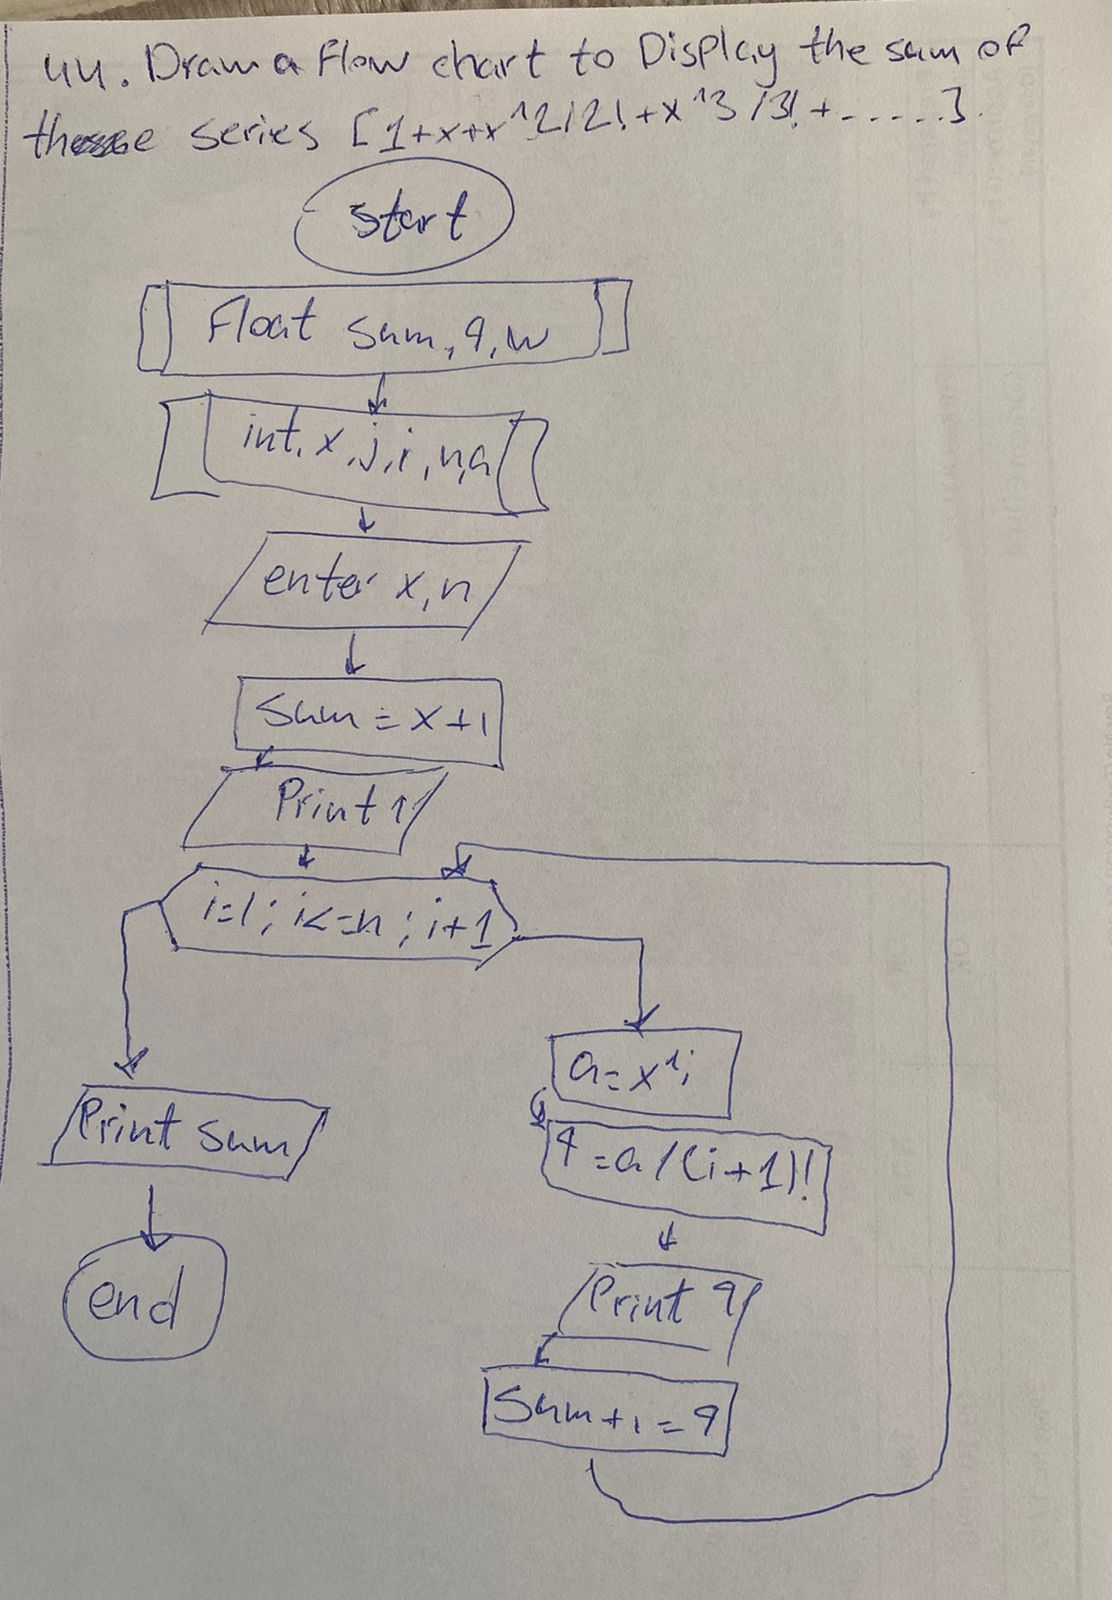 44. Draw a Flow chart to Display the sum of
these series [1+x+x^2/2!+x^3/3!+.....].
start
Float sum, q, w
int, x, j, i, n, a
enter x, n
Sum = x+1
Print 1
i=1; i<=n; i+1
a=x^i
q=a/(i+1)!
Print sum
Print q
end
Sum+1=q